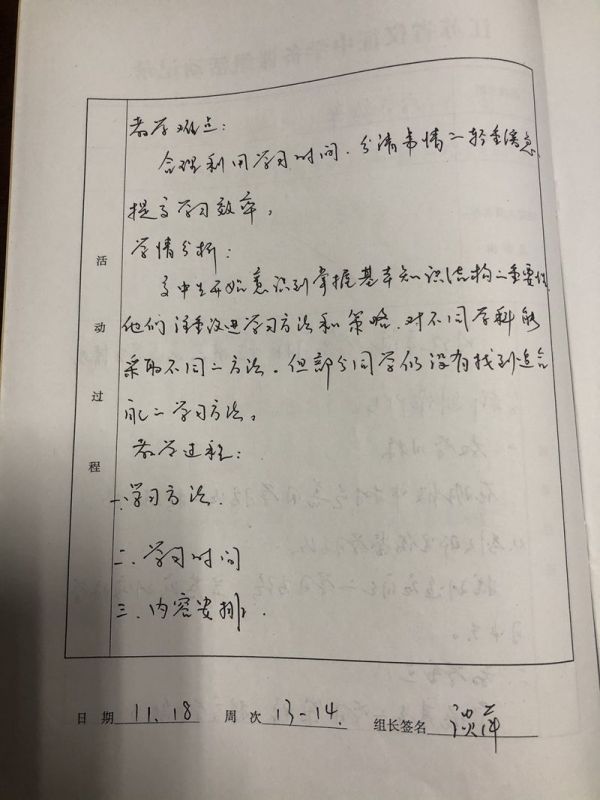 教学难点：
合理利用学习时间，分清事情的轻重缓急
提高学习效率。
学情分析：
高中生开始意识到掌握基本知识结构的重要性
他们注重改进学习方法和策略，对不同学科能
采取不同的方法。但部分同学仍没有找到适合
自己的学习方法。
教学过程：
一、学习方法
二、学习时间
三、内容安排
活
动
过
程
日 期 11.18 周 次 13-14. 组长签名